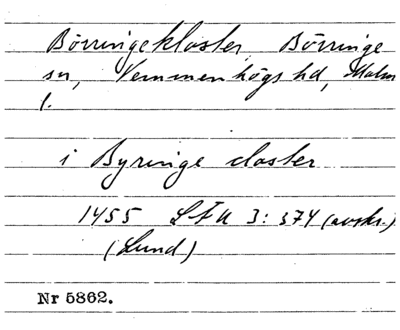 Börringekloster, Börringe
sn, Vemmenhögs hd, Malm
l.
i Byringe closter
1455 LÄU 3: 374 (avskr.)
(Lund)
Nr 5862.